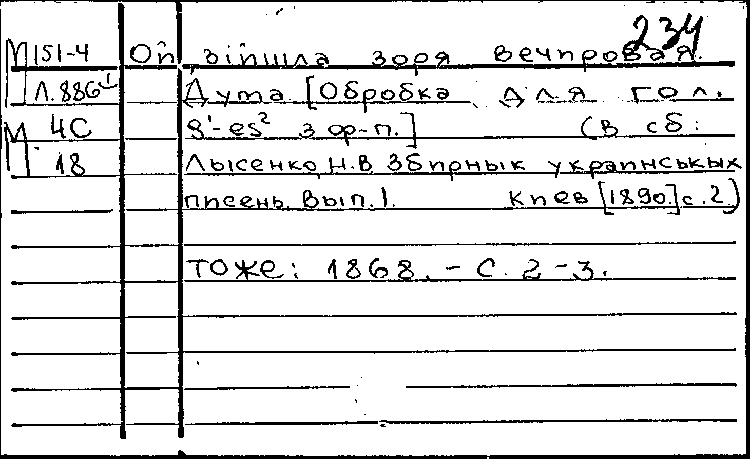 234
М 151-4 Ой, зійшла зоря вечировая.
Л.886¹ Дума [Обробка для гол.
М 4С g'-es² з ф-п.] (В сб:
18 Лысенко, Н.В Збирнык украинськых
писень. Вып.1. Киев [1890.] с.2)
тоже: 1868. - С. 2-3.